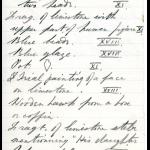 two beads. XI
Frag. of limestone with
upper part of human figure XI
Blue beads. XVIII
Blue glaze. XVIII
Pot XI
A Fresl painting of a face
on limestone. XIII
Wooden hawk from a box
or coffin.
Fragt. of limestone stela
mentioning "His daughter